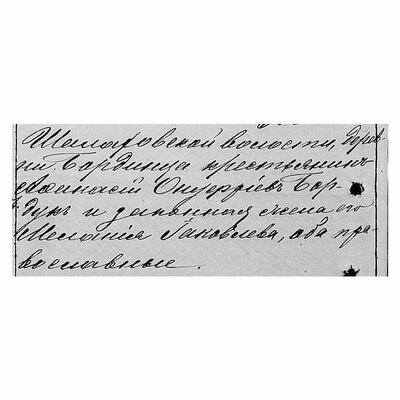 Шалаховской волости, дерев-
ни Бардинца крестьянинъ
Афанасій Онуфріевъ Бор-
дукъ и законная жена его
Меланія Яковлева, оба пра-
вославные.